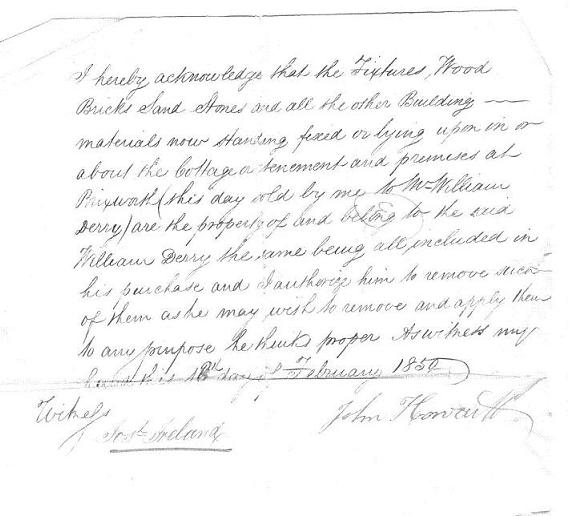 I hereby acknowledge that the Fixtures, Wood
Bricks Sand Stones and all the other Building —
materials now standing fixed or lying upon in or
about the Cottage or tenement and premises at
Brixworth (this day sold by me to Mr William
Derry) are the property of and belong to the said
William Derry the same being all included in
his purchase and I authorize him to remove such
of them as he may wish to remove and apply them
to any purpose he thinks proper As witness my
hand this day of February 1850
Witness
John
Ireland